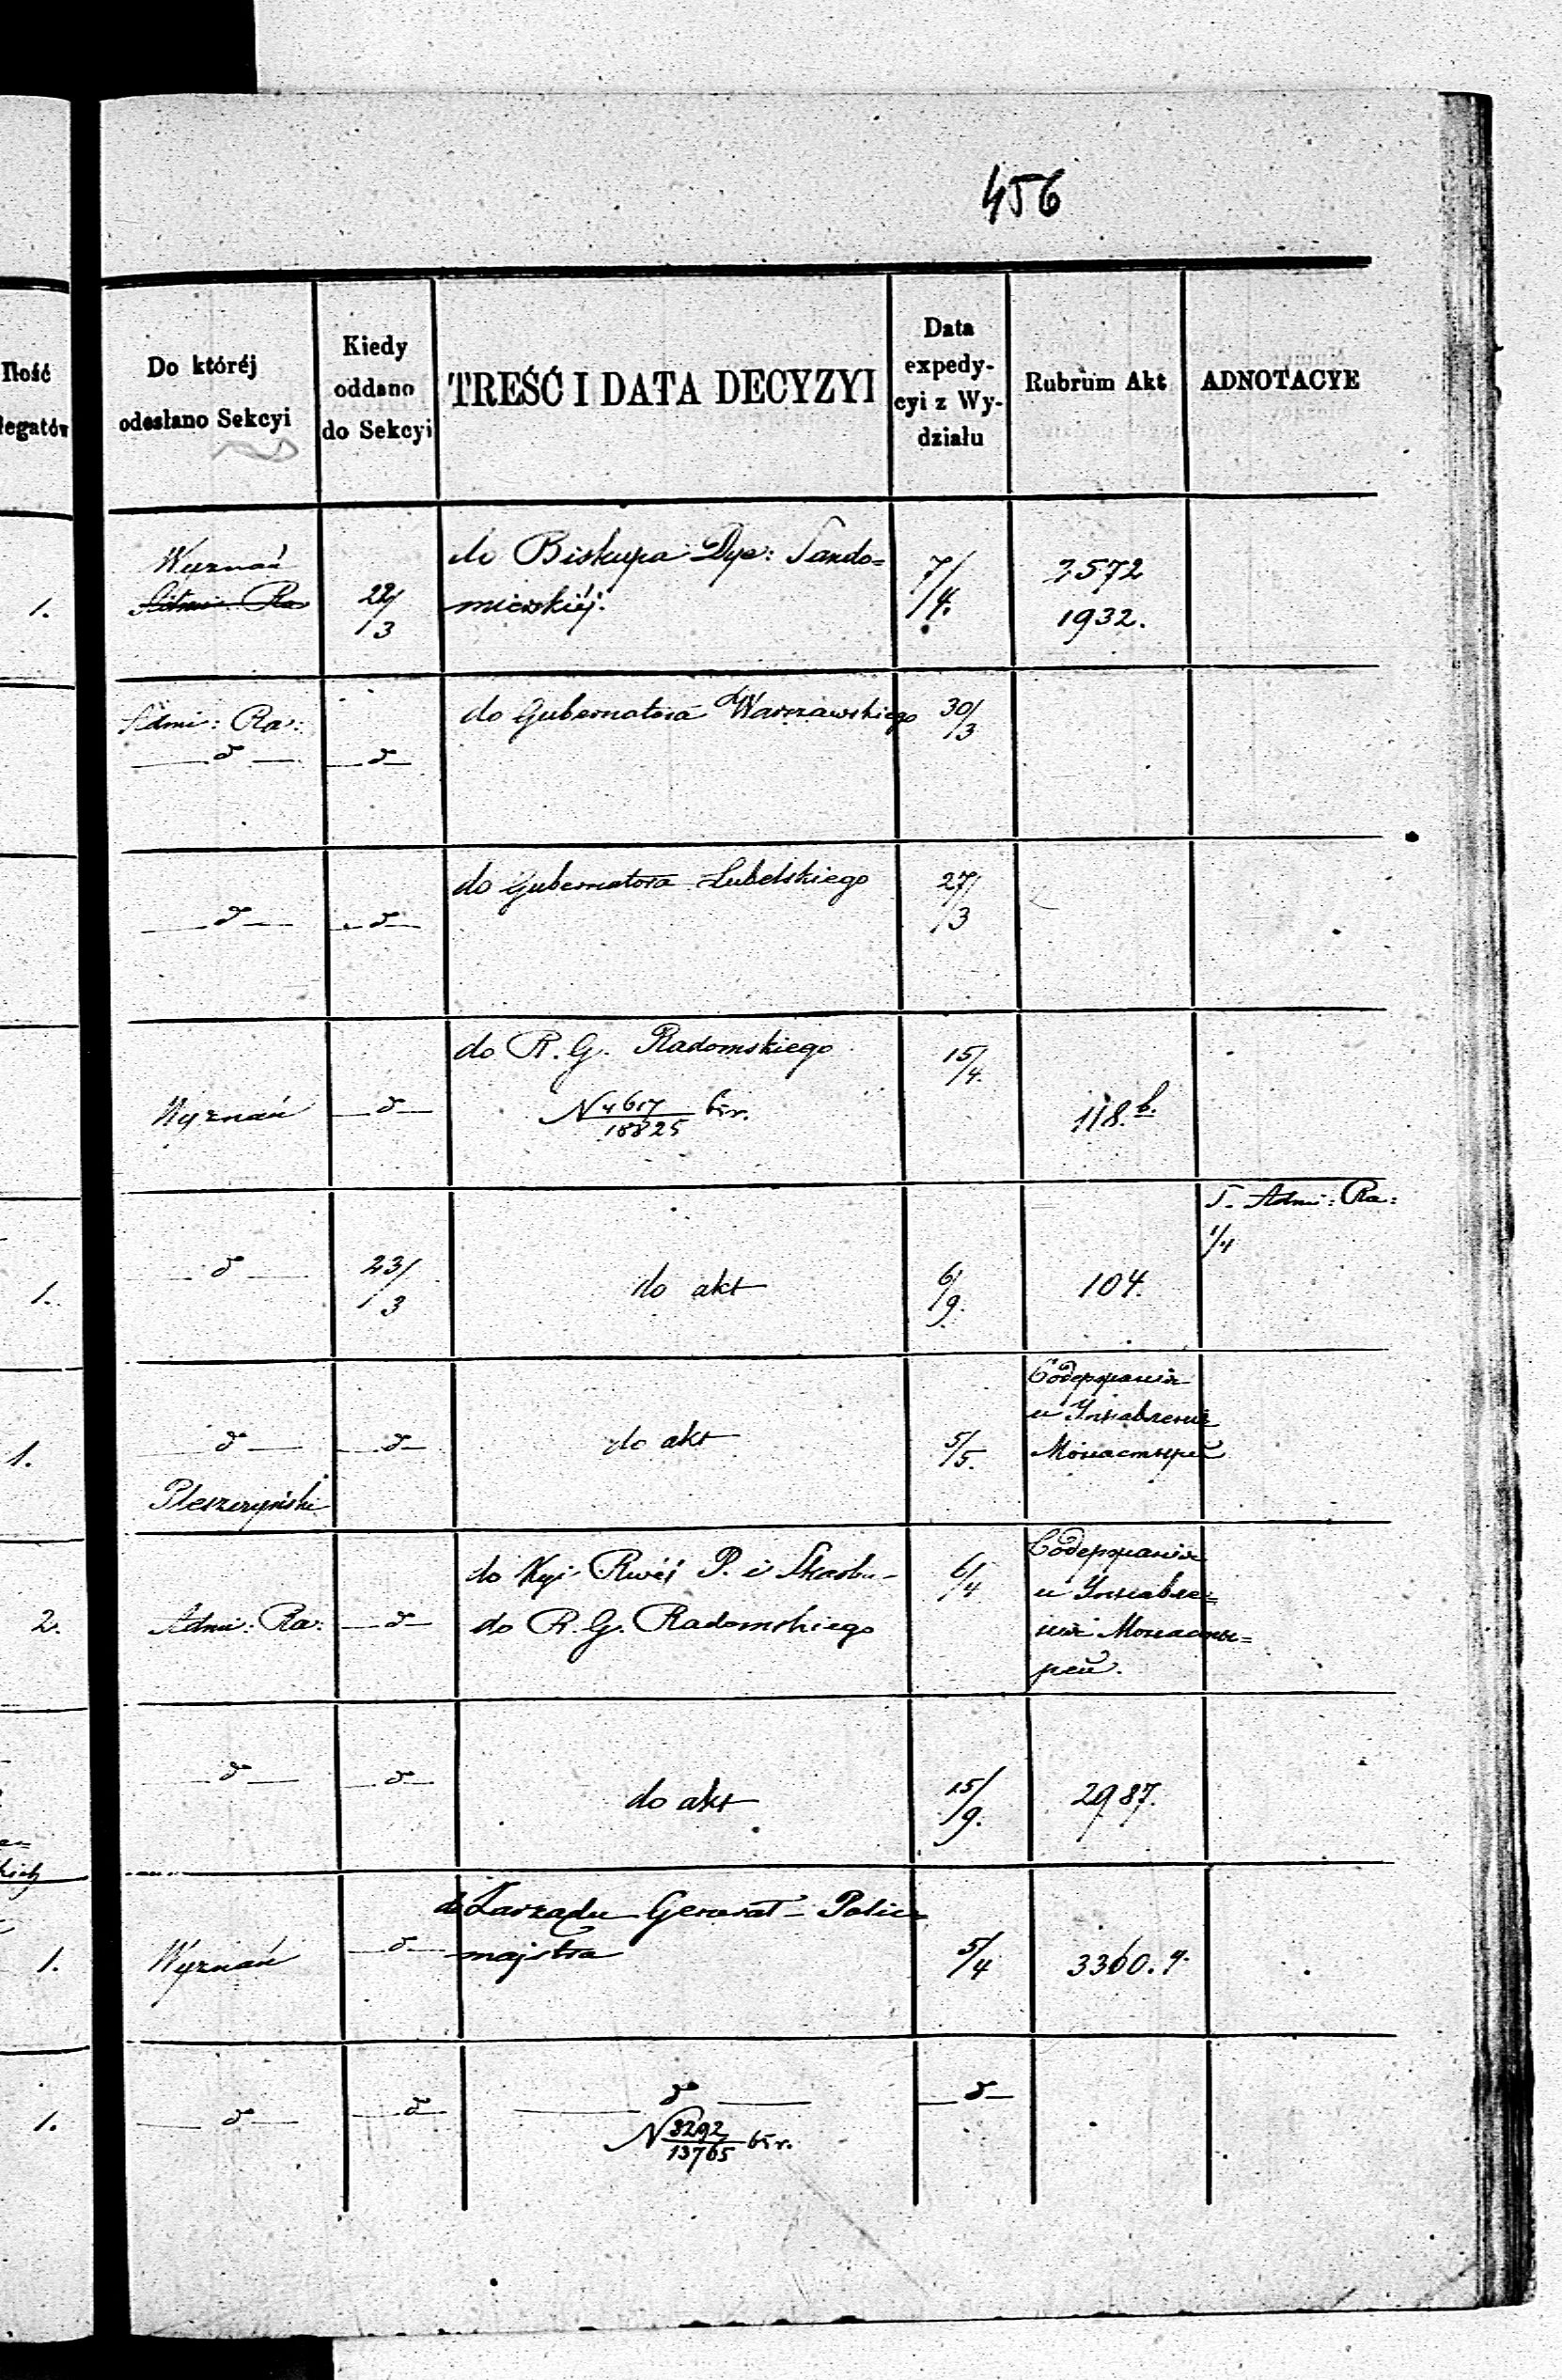 456
Ilość
legatów
Do któréj
odesłano Sekcyi
Kiedy
oddano
do Sekcyi
TREŚĆ I DATA DECYZYI
Data
expedy-
cyi z Wy-
działu
Rubrum Akt
ADNOTACYE
1.
Wyznań
Admi: Ra:
22/3
do Biskupa Dye: Sando=
mierskiéj.
7/4.
2572
1932.
Admi: Ra:
—d—
—d—
do Gubernatora Warszawskiego
30/3
—d—
—d—
do Gubernatora Lubelskiego
27/3
Wyznań
—d—
do R. G. Radomskiego
N 4617/18825 br.
15/4.
118.b.
1.
—d—
23/3
do akt
6/9.
104.
S. Admi: Ra:
1/4
1.
—d—
Pleszczyński
—d—
do akt
5/5.
Содержанія
и
Монастырей
2.
Admi: Ra:
—d—
do Kyi Rwéj P. i Skarbu
do R. G. Radomskiego
6/4
Содержанія
и
нія Монасты=
рей.
—d—
—d—
do akt
15/9.
2987.
kich
1.
Wyznań
—d—
do Zarządu Generał-Polic=
majstra
5/4
3360.
1.
—d—
—d—
—d—
N 3292/13765 br.
—d—